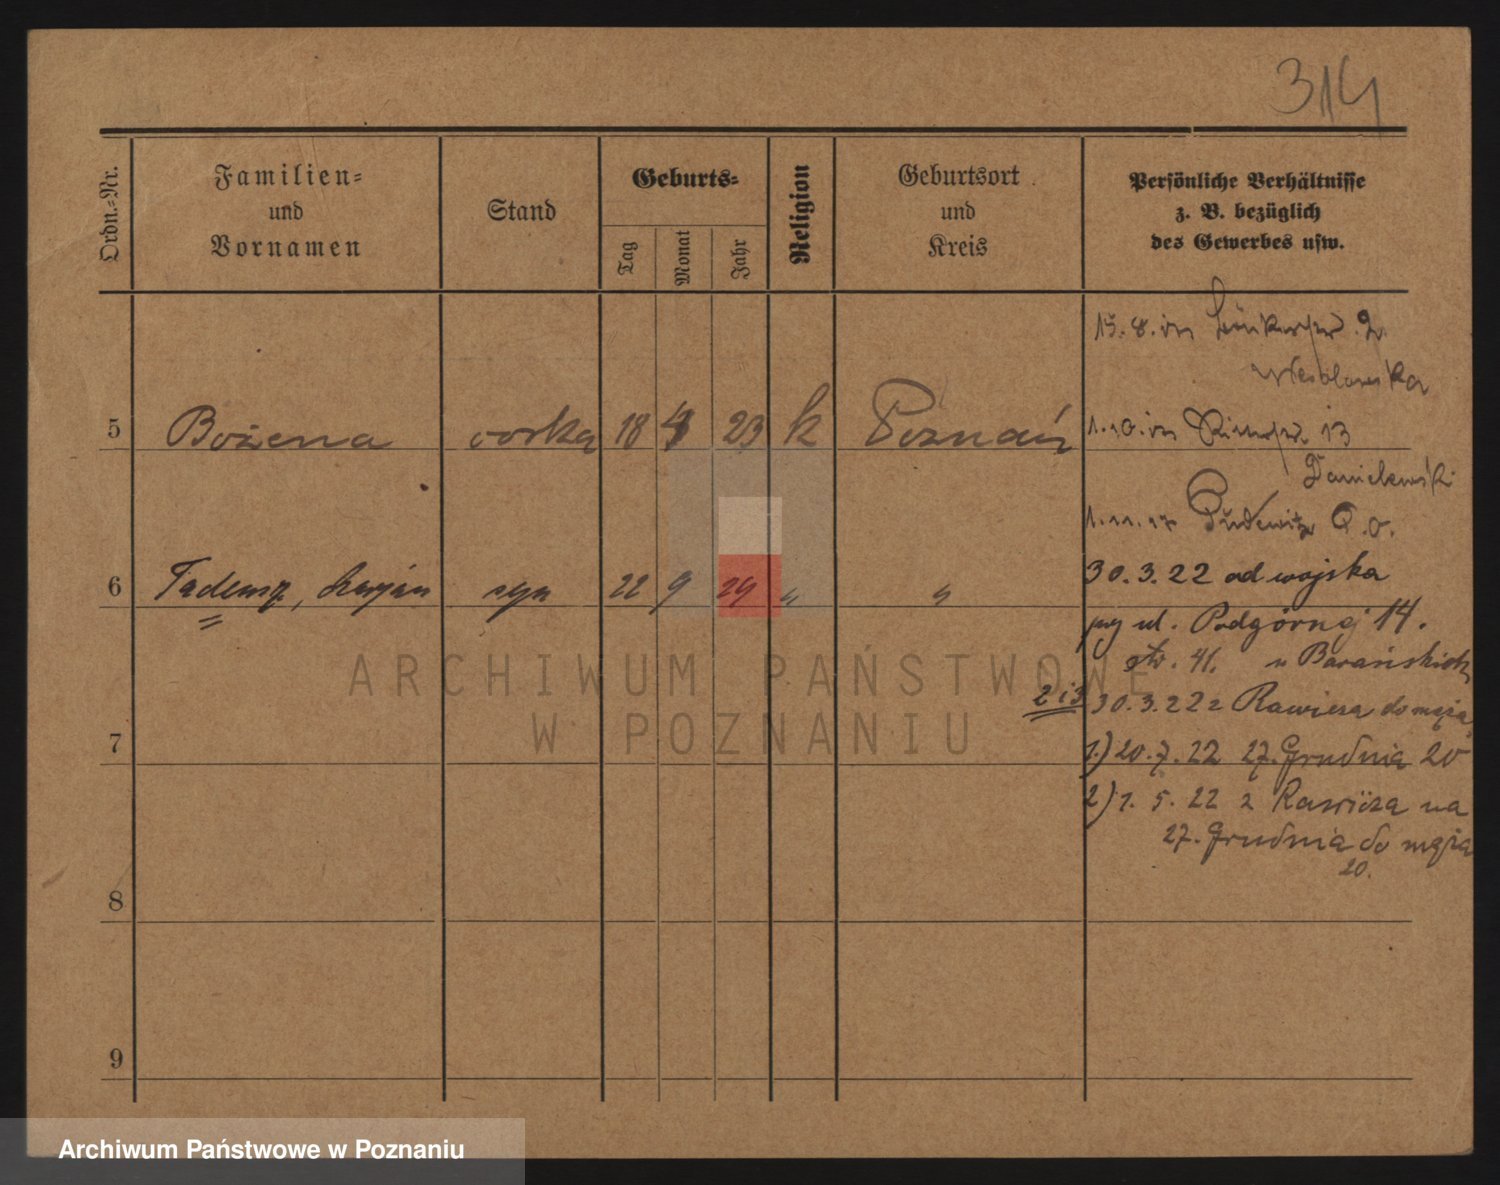 314
Ordn.-Nr.
Familien-
und
Vornamen
Stand
Geburts-
Tag
Monat
Jahr
Religion
Geburtsort
und
Kreis
Persönliche Verhältnisse
z. B. bezüglich
des Gewerbes usw.
15. 8. in
5 Bożena córka 18 4 23 k Poznań
1. 10. in 13
Danielewski
1. 11. 17 Pudewitz
30. 3. 22 od wojska
6 Tadeusz, syn 22 9 24 " "
przy ul. Podgórnej 14.
str. 41. u Barańskich
2 i 3 30. 3. 22 z Rawicza do męża
7
1.) 20. 7. 22 27. Grudnia 20
2) 1. 5. 22 z Rawicza na
27. Grudnia do męża
20.
8
9
ARCHIWUM PAŃSTWOWE
W POZNANIU
Archiwum Państwowe w Poznaniu